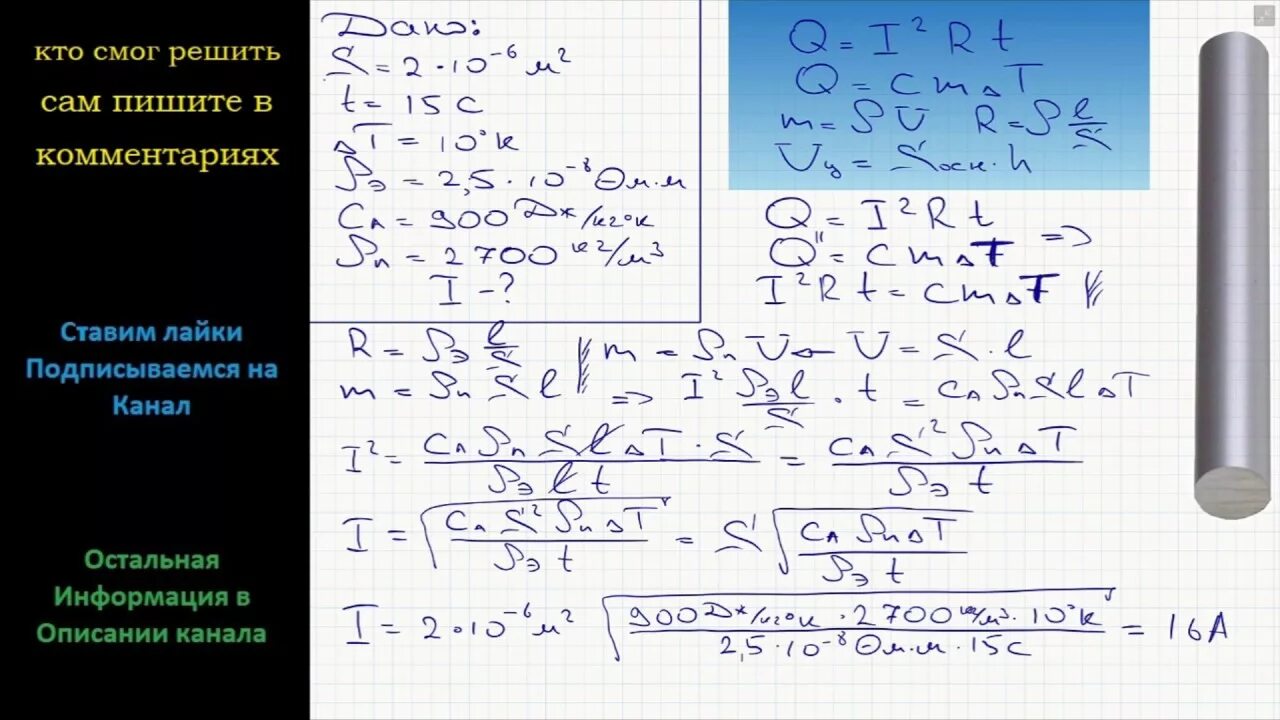 кто смог решить
сам пишите в
комментариях
Ставим лайки
Подписываемся на
Канал
Остальная
Информация в
Описании канала
Дано:
S = 2·10⁻⁶ м²
t = 15 с
ΔT = 10°К
ρэ = 2,5·10⁻⁸ Ом·м
Cл = 900 Дж/кг°к
ρп = 2700 кг/м³
I - ?
Q = I² R t
Q = c m ΔT
m = ρ V R = ρ l/S
Vц = Sосн·h
Q = I² R t
Q = c m ΔT =>
I² R t = c m ΔT
R = ρэ l/S
m = ρп V ← V = S·l
m = ρп S l => I² ρэ l/S · t = cл ρп S l ΔT
I² = cл ρп S l ΔT·S / ρэ l t = cл S² ρп ΔT / ρэ t
I = √(cл S² ρп ΔT / ρэ t) = S √(cл ρп ΔT / ρэ t)
I = 2·10⁻⁶ м² √(900 Дж/кг°к · 2700 кг/м³ · 10°К / 2,5·10⁻⁸ Ом·м·15с) = 16А